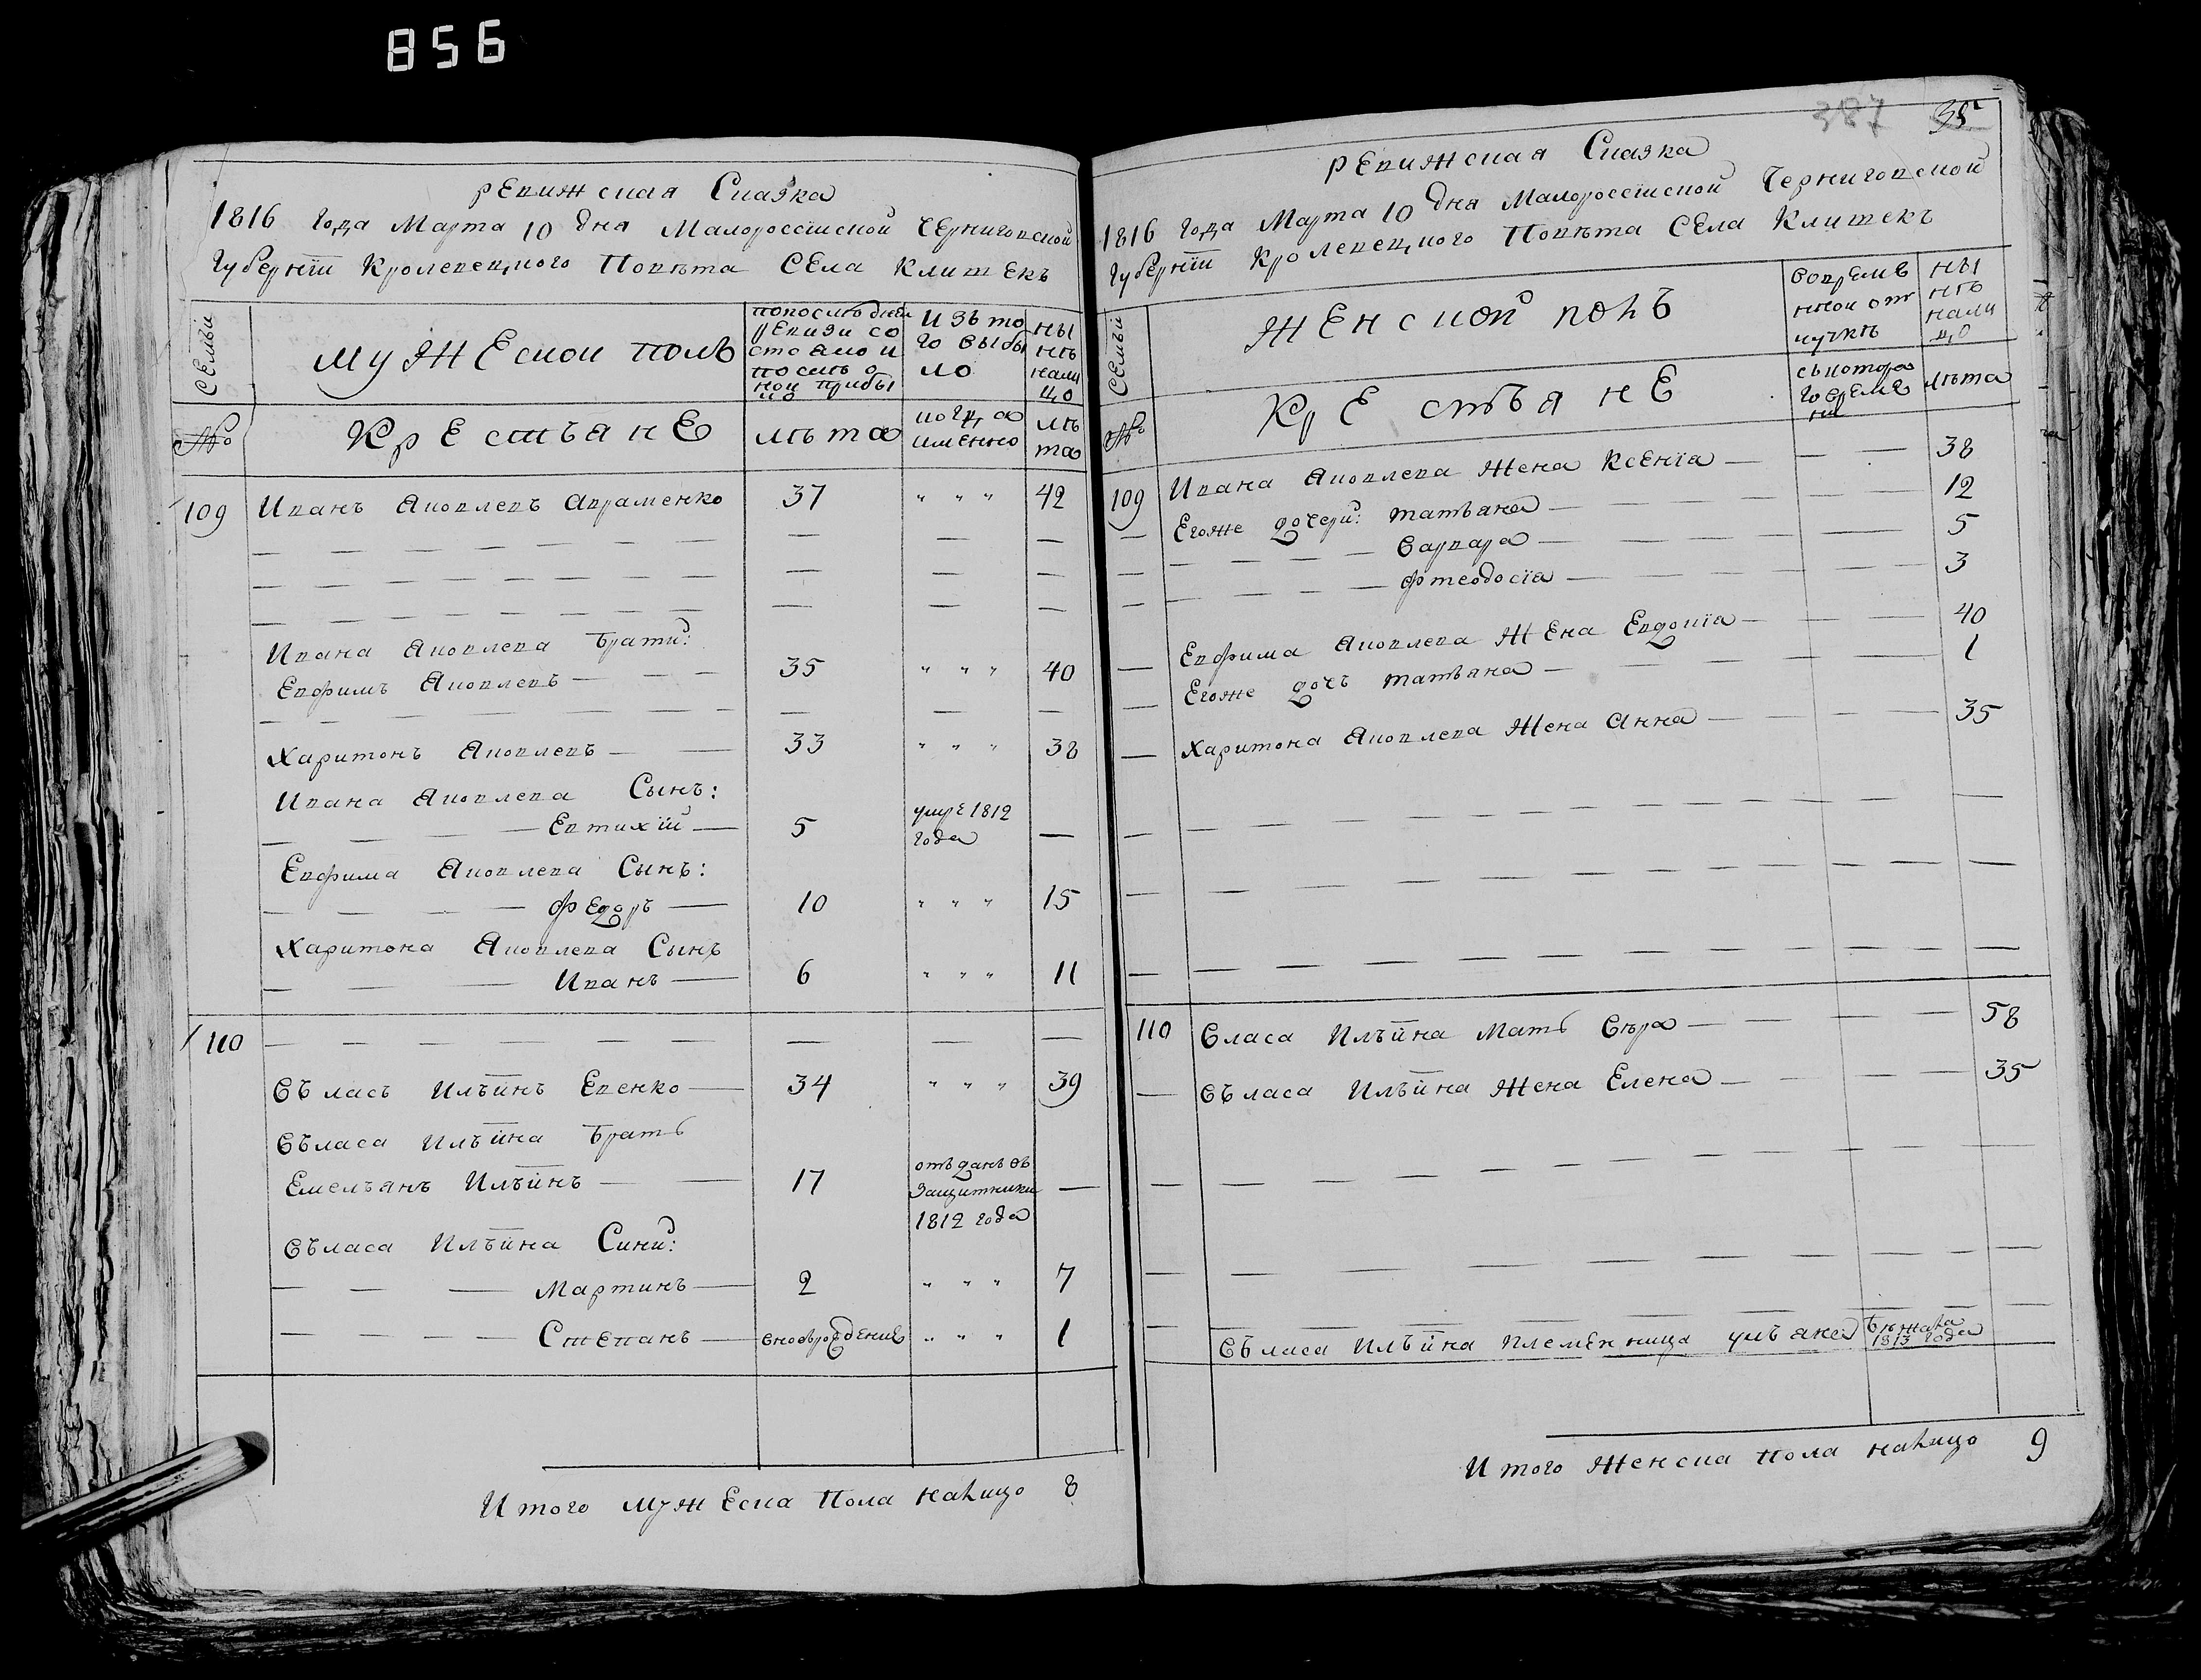 856
РЕвижская Сказка
1816 года Марта 10 дня Малороссійской Черниговской
Губерніи Кролевецкого Повѣта СЕла Клишекъ
СЕмьи
МуЖЕской полъ
попослѣдней ревизи состояло и послѣ оной прибыло
Изъ того выбыло
нынѣ налицо
№
КрЕстьянЕ
лѣта
когда именно
лѣта
109 Иванъ Яковлевъ Авраменко 37 " " " 42
Ивана Яковлева братіи:
Евфимъ Яковлевъ 35 " " " 40
Харитонъ Яковлевъ 33 " " " 38
Ивана Яковлева Сынъ:
Евтихій 5 умре 1812 года
Евфима Яковлева Сынъ:
Федоръ 10 " " " 15
Харитона Яковлева Сынъ
Иванъ 6 " " " 11
110
Въласъ Илъинъ Евенко 34 " " " 39
Въласа Илъина братъ
Емелъянъ Илъинъ 17 отъданъ въ защитники 1812 года
Въласа Илъина Сини:
Мартинъ 2 " " " 7
Степанъ вновърождение " " " 1
Итого мужЕска пола налицо 8
387 35
РЕвижская Сказка
1816 года Марта 10 дня Малороссійской Черниговской
Губерніи Кролевецкого Повѣта СЕла Клишекъ
СЕмьи
ЖЕнской полъ
Вовремѣнной отлучкѣ
нынѣ налицо
№
КрЕстьянЕ
съкоторого времени
лѣта
109 Ивана Яковлева Жена Ксенія 38
Егоже дочери: татьяна 12
Варвара 5
Фтеодосія 3
Евфима Яковлева ЖЕна Евдокія 40
Егоже дочь татьяна 1
Харитона Яковлева Жена Анна 35
110 Власа Илъина Мать Вѣра 58
Въласа Илъина Жена Елена 35
Въласа Илъина племенница улъяна бѣжала 1813 года
Итого Женска пола налицо 9